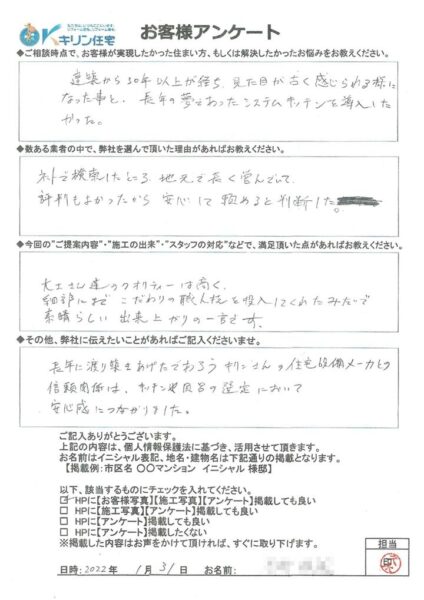 OKキリン住宅
お客様アンケート
◆ご相談時点で、お客様が実現したかった住まい方、もしくは解決したかったお悩みをお教えください。
建築から30年以上が経ち、見た目が古く感じられる様に
なった事と、長年の夢であったシステムキッチンを導入した
かった。
◆数ある業者の中で、弊社を選んで頂いた理由があればお教えください。
ネットで検索したところ、地元で長く営んでいて
評判もよかったから安心して頼めると判断した。
◆今回の"ご提案内容"・"施工の出来"・"スタッフの対応"などで、満足頂いた点があればお教えください。
大工さん達のクオリティーは高く、
細部にまで こだわりの職人技を投入してくれたみたいで
素晴らしい 出来上がりの一言です。
◆その他、弊社に伝えたいことがあればご記入くださいませ。
長年に渡り築きあげたであろう キリンさんの住宅設備メーカとの
信頼関係は、キッチンや風呂の選定において
安心感につながりました。
ご記入ありがとうございます。
上記の内容は、個人情報保護法に基づき、活用させて頂きます。
お名前はイニシャル表記、地名・建物名は下記通りの掲載となります。
【掲載例：市区名 〇〇マンション イニシャル 様邸】
以下、該当するものにチェックを入れてください。
☑ HPに【お客様写真】【施工写真】【アンケート】掲載しても良い
□ HPに【施工写真】【アンケート】掲載しても良い
□ HPに【アンケート】掲載しても良い
□ HPに【アンケート】掲載したくない
※掲載した内容はお声をかけて頂ければ、すぐに取り下げます。
担当
印
日時：2022年 1月 31日 お名前：